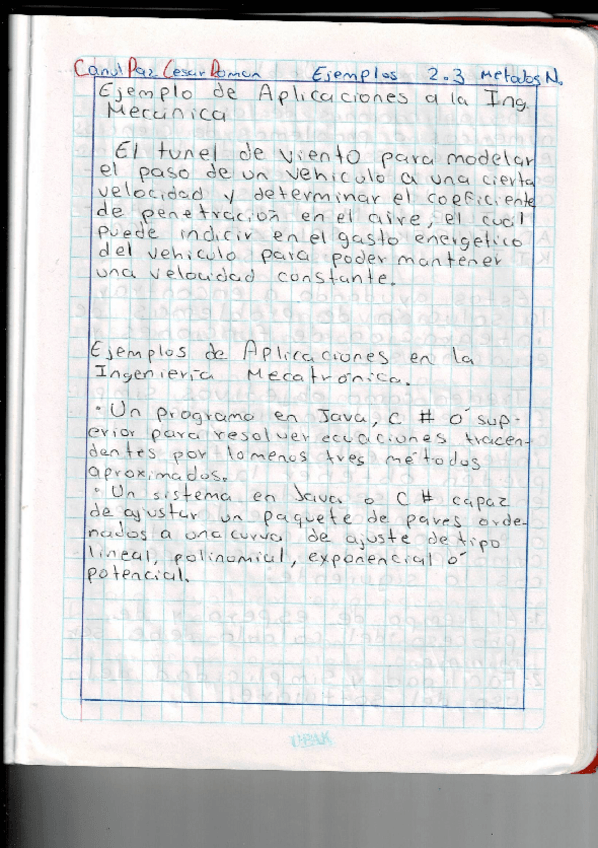 Canul Paz Cesar Roman Ejemplos 2.3 Metodos N.
Ejemplo de Aplicaciones a la Ing.
Mecánica
El tunel de viento para modelar
el paso de un vehiculo a una cierta
velocidad y determinar el coeficiente
de penetracion en el aire, el cual
puede indicir en el gasto energetico
del vehiculo para poder mantener
una velocidad constante.
Ejemplos de Aplicaciones en la
Ingenieria Mecatrónica.
• Un programa en Java, C # ó sup-
erior para resolver ecuaciones tracen-
dentes por lo menos tres métodos
aproximados.
• Un sistema en Java o C # capaz
de ajustar un paquete de pares orde-
nados a una curva de ajuste de tipo
lineal, polinomial, exponencial ó
potencial.